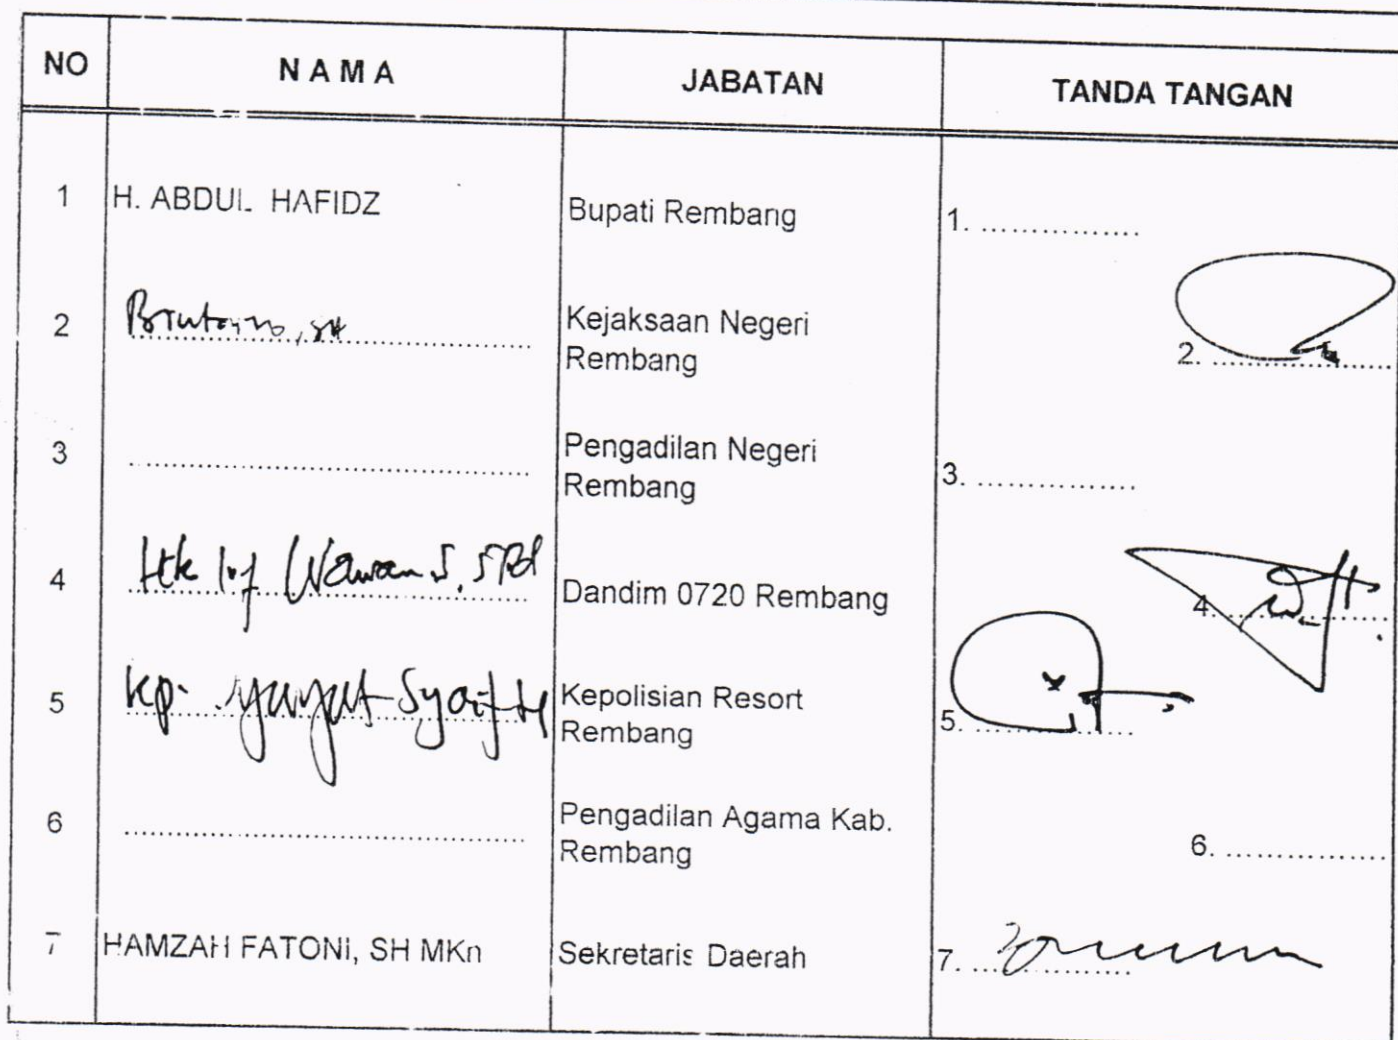 NO NAMA JABATAN TANDA TANGAN
1 H. ABDUL HAFIDZ Bupati Rembang 1. ..................
2 , SH Kejaksaan Negeri
Rembang 2. ..................
3 .................. Pengadilan Negeri
Rembang 3. ..................
4 Wawan S. SPd Dandim 0720 Rembang 4. ..................
5 Kp. Yayat Kepolisian Resort
Rembang 5. ..................
6 .................. Pengadilan Agama Kab.
Rembang 6. ..................
7 HAMZAH FATONI, SH MKn Sekretaris Daerah 7. ..................